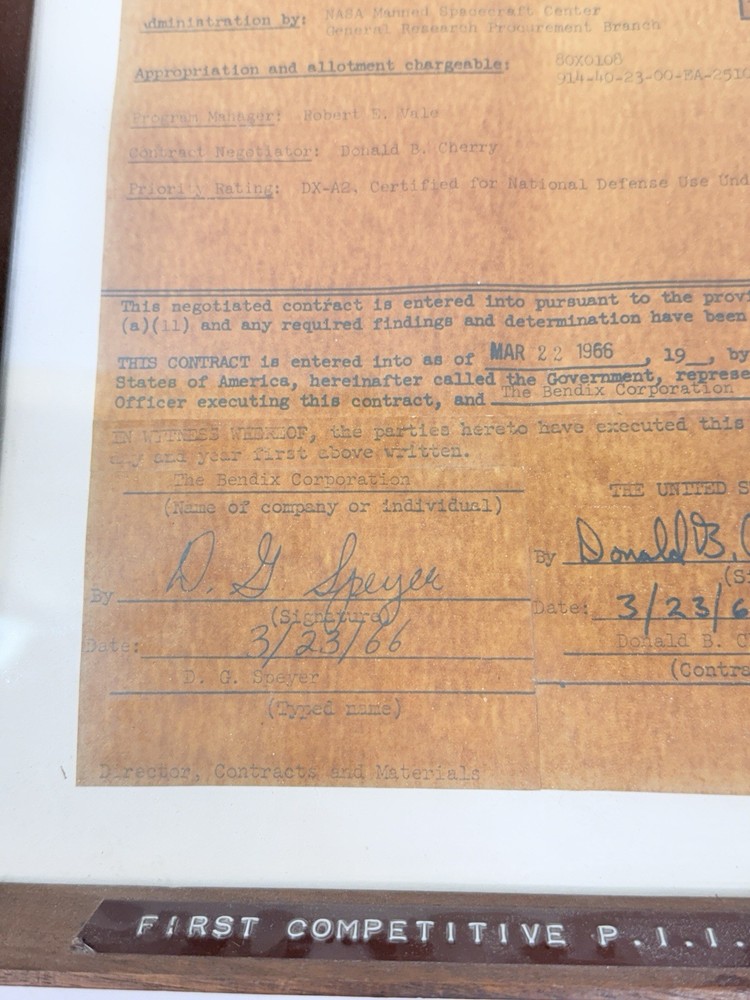 Administration by: NASA Manned Spacecraft Center
General Research Procurement Branch
Appropriation and allotment chargeable: 80X0108
914-40-23-00-EA-2510
Program Manager: Robert E. Vale
Contract Negotiator: Donald B. Cherry
Priority Rating: DX-A2, Certified for National Defense Use Und
This negotiated contract is entered into pursuant to the provi
(a)(11) and any required findings and determination have been
THIS CONTRACT is entered into as of MAR 22 1966, 19__, by
States of America, hereinafter called the Government, represe
Officer executing this contract, and The Bendix Corporation
IN WITNESS WHEREOF, the parties hereto have executed this
day and year first above written.
The Bendix Corporation
(Name of company or individual)
THE UNITED S
By D. G Speyer
(Signature)
Date: 3/23/66
D. G. Speyer
(Typed name)
Director, Contracts and Materials
By Donald B. C
(Si
Date: 3/23/6
Donald B. C
(Contra
FIRST COMPETITIVE P.I.I.